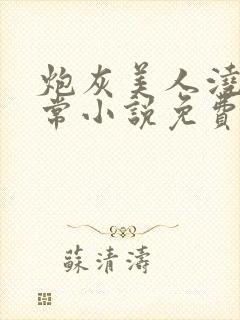 炮灰美人澆
常小說免費
蘇清濤